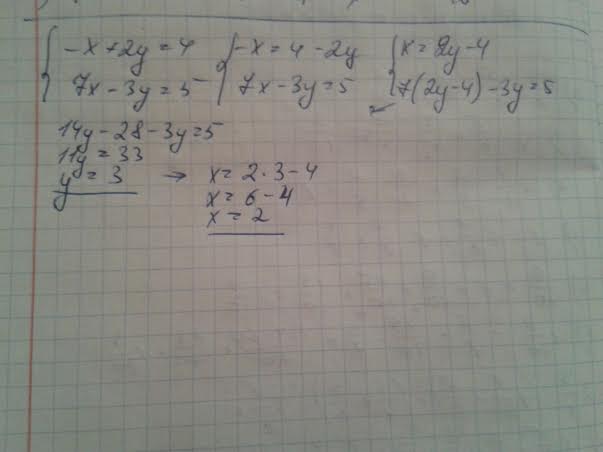 -x+2y=4 -x=4-2y x=2y-4
7x-3y=5 7x-3y=5 7(2y-4)-3y=5
14y-28-3y=5
11y=33
y=3 → x=2·3-4
x=6-4
x=2